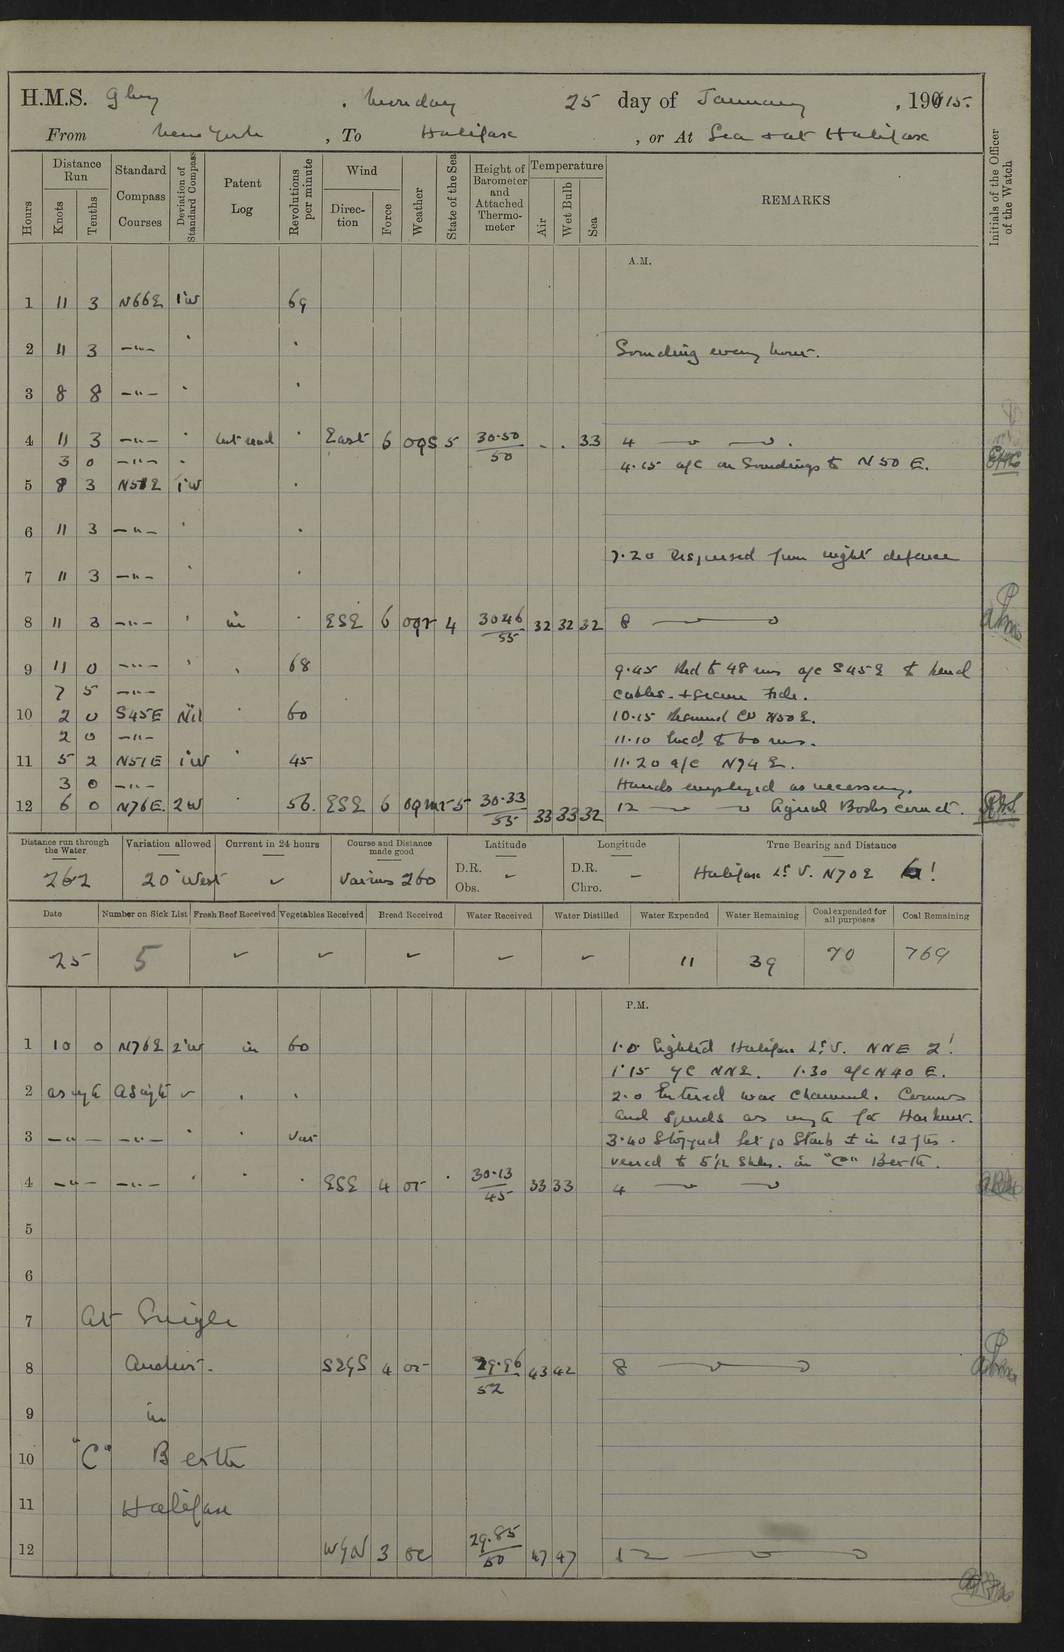 H.M.S. Glory , Monday 25 day of January , 1915.
From New York , To Halifax , or At Sea & at Halifax
Hours
Distance Run
Knots
Tenths
Standard Compass Courses
Deviation of Standard Compass
Patent Log
Revolutions per minute
Wind
Direction
Force
Weather
State of the Sea
Height of Barometer and Attached Thermometer
Temperature
Air
Wet Bulb
Sea
REMARKS
Initials of the Officer of the Watch
A.M.
1 11 3 N66E 1°W 69
2 11 3 —"— " " Sounding every hour.
3 8 8 —"— " "
4 11 3 —"— " " East 6 oqs 5 30.50/50 - . 33 4
3 0 —"— " 4.15 a/c on Soundings to N 50 E.
5 8 3 N51E 1°W "
6 11 3 —"— " "
7.20 Dispersed from night defence
7 11 3 —"— " "
8 11 3 —"— " in " ESE 6 oqr 4 30.46/55 32 32 32 8
9 11 0 —"— " " 68 9.45 Red to 48 revs a/c S45E to bend
7 5 —"— cables. & secure
10 2 0 S45E Nil " 60 10.15 Resumed Co N50E.
2 0 —"— 11.10 Incd to 60 revs.
11 5 2 N51E 1°W " 45 11.20 a/c N74E.
3 0 —"— Hands employed as necessary.
12 6 0 N76E. 2W " 56. ESE 6 oqmr 5 30.33/55 33 33 32 12 Signal Books correct.
Distance run through the Water
Variation allowed
Current in 24 hours
Course and Distance made good
Latitude
Longitude
True Bearing and Distance
262 20° West ✓ Various 260 D.R. Obs. - D.R. Chro. - Halifax Lt V. N70E 6'
Date
Number on Sick List
Fresh Beef Received
Vegetables Received
Bread Received
Water Received
Water Distilled
Water Expended
Water Remaining
Coal expended for all purposes
Coal Remaining
25 5 ✓ ✓ ✓ ✓ ✓ 11 39 70 769
P.M.
1 10 0 N76E 2°W in 60 1.0 Sighted Halifax Lt. V. NNE 2'.
1.15 a/c NNE. 1.30 a/c N40E.
2 as reqte as reqte ✓ " " 2.0 Entered war channel. Courses
and speeds as reqte for Harbour.
3 —"— —"— " " Var 3.40 Stopped let go Starb ± in 12 fms.
veered to 5½ Shks. in "C" Berth.
4 —"— —"— " " " ESE 4 or " 30.13/45 33 33 4
5
6
7 At Single
8 Anchor. SEyS 4 or 29.96/52 43 42 8
9 in
10 "C" Berth
11 Halifax
12 WyN 3 oc 29.85/50 47 47 12